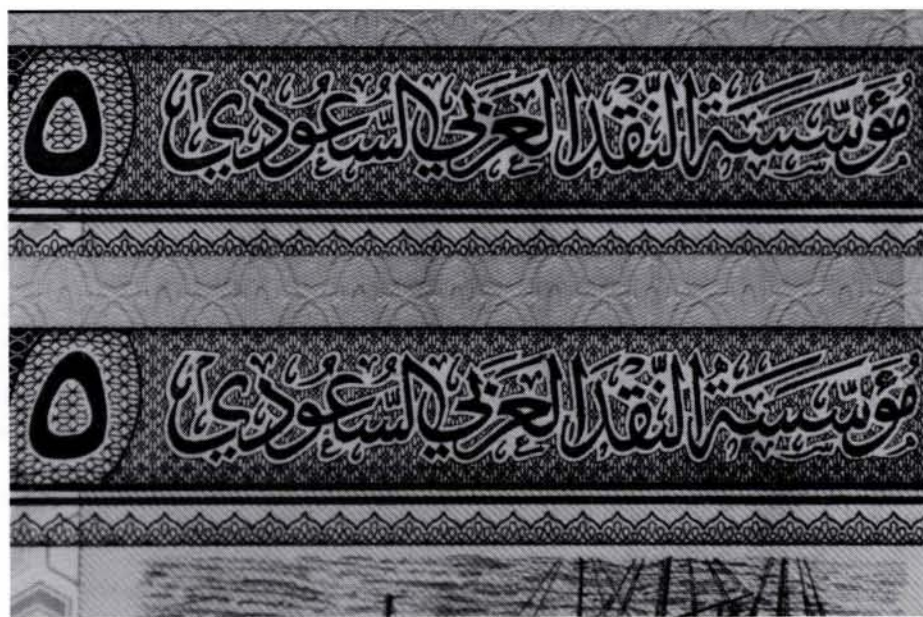 مؤسّسَةُ النّقد العَربي السُّعُودي ٥
مؤسّسَةُ النّقد العَربي السُّعُودي ٥